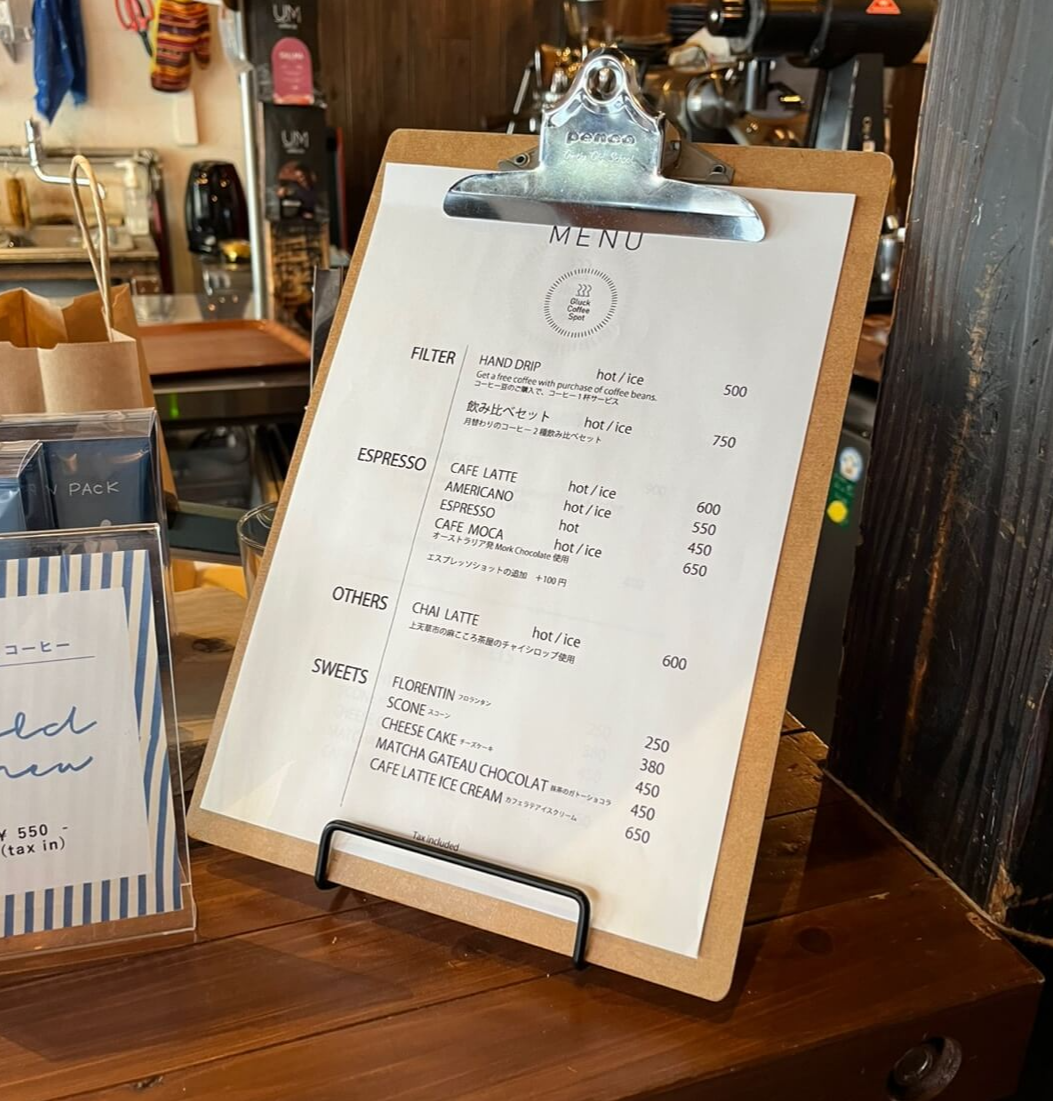 UM
UM
penco
MENU
Gluck
Coffee
Spot
FILTER
HAND DRIP hot / ice 500
Get a free coffee with purchase of coffee beans.
コーヒー豆のご購入で、コーヒー1杯サービス
飲み比べセット hot / ice 750
月替わりのコーヒー2種飲み比べセット
ESPRESSO
CAFE LATTE hot / ice 600
AMERICANO hot / ice 550
ESPRESSO hot 450
CAFE MOCA hot / ice 650
オーストラリア発 Mork Chocolate 使用
エスプレッソショットの追加 +100円
OTHERS
CHAI LATTE hot / ice 600
上天草市の麻こころ茶屋のチャイシロップ使用
SWEETS
FLORENTIN フロランタン 250
SCONE スコーン 380
CHEESE CAKE チーズケーキ 450
MATCHA GATEAU CHOCOLAT 抹茶のガトーショコラ 450
CAFE LATTE ICE CREAM カフェラテアイスクリーム 650
Tax included
PACK
コーヒー
¥ 550 -
(tax in)